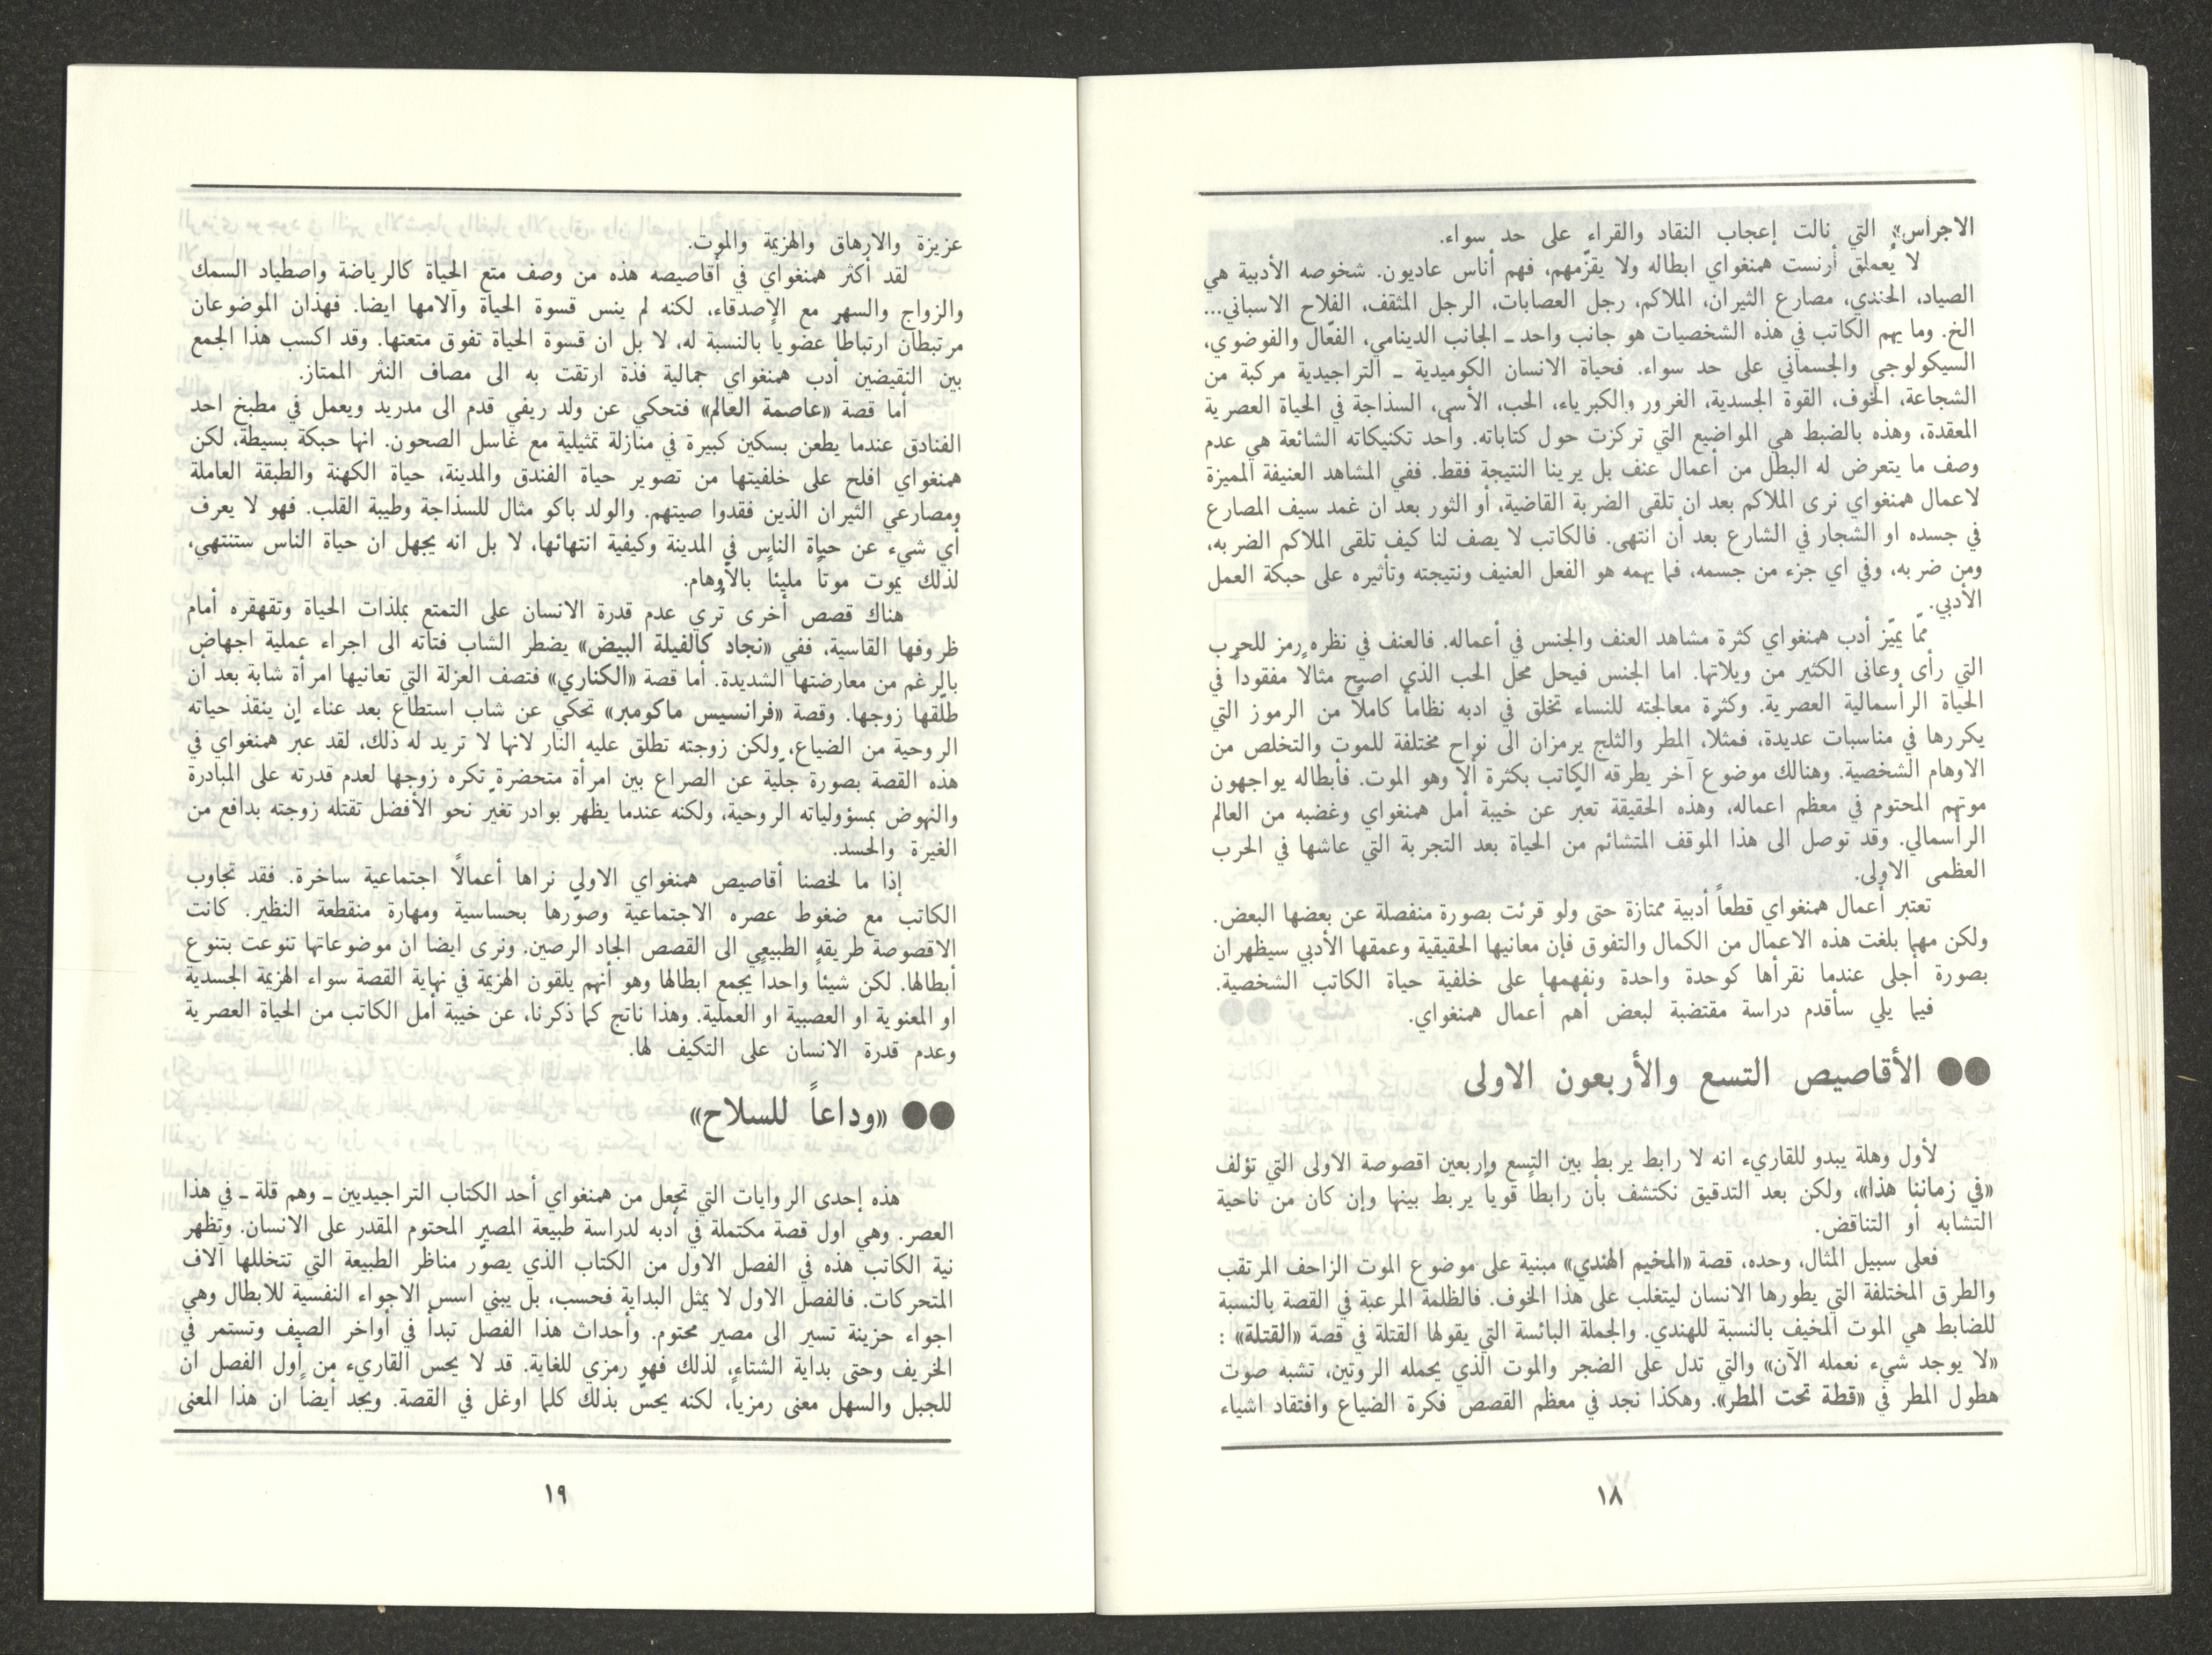 الاجراس» التي نالت إعجاب النقاد والقراء على حد سواء.
لا يُعملق أرنست همنغواي ابطاله ولا يقزّمهم، فهم أناس عاديون. شخوصه الأدبية هي
الصياد، الجندي، مصارع الثيران، الملاكم، رجل العصابات، الرجل المثقف، الفلاح الاسباني...
الخ. وما يهم الكاتب في هذه الشخصيات هو جانب واحد ـ الجانب الدينامي، الفعّال والفوضوي،
السيكولوجي والجسماني على حد سواء. فحياة الانسان الكوميدية ـ التراجيدية مركبة من
الشجاعة، الخوف، القوة الجسدية، الغرور والكبرياء، الحب، الأسى، السذاجة في الحياة العصرية
المعقدة، وهذه بالضبط هي المواضيع التي تركزت حول كتاباته. وأحد تكنيكاته الشائعة هي عدم
وصف ما يتعرض له البطل من أعمال عنف بل يرينا النتيجة فقط. ففي المشاهد العنيفة المميزة
لاعمال همنغواي نرى الملاكم بعد ان تلقى الضربة القاضية، أو الثور بعد ان غمد سيف المصارع
في جسده او الشجار في الشارع بعد أن انتهى. فالكاتب لا يصف لنا كيف تلقى الملاكم الضربه،
ومن ضربه، وفي اي جزء من جسمه، فما يهمه هو الفعل العنيف ونتيجته وتأثيره على حبكة العمل
الأدبي.
ممّا يميّز أدب همنغواي كثرة مشاهد العنف والجنس في أعماله. فالعنف في نظره رمز للحرب
التي رأى وعانى الكثير من ويلاتها. اما الجنس فيحل محل الحب الذي اصبح مثالاً مفقوداً في
الحياة الرأسمالية العصرية. وكثرة معالجته للنساء تخلق في ادبه نظاماً كاملاً من الرموز التي
يكررها في مناسبات عديدة، فمثلاً، المطر والثلج يرمزان الى نواح مختلفة للموت والتخلص من
الاوهام الشخصية. وهنالك موضوع آخر يطرقه الكاتب بكثرة ألا وهو الموت. فأبطاله يواجهون
موتهم المحتوم في معظم اعماله، وهذه الحقيقة تعبر عن خيبة أمل همنغواي وغضبه من العالم
الرأسمالي. وقد توصل الى هذا الموقف المتشائم من الحياة بعد التجربة التي عاشها في الحرب
العظمى الاولى.
تعتبر أعمال همنغواي قطعاً أدبية ممتازة حتى ولو قرئت بصورة منفصلة عن بعضها البعض.
ولكن مهما بلغت هذه الاعمال من الكمال والتفوق فإن معانيها الحقيقية وعمقها الأدبي سيظهران
بصورة أجلى عندما نقرأها كوحدة واحدة ونفهمها على خلفية حياة الكاتب الشخصية.
فيما يلي سأقدم دراسة مقتضبة لبعض أهم أعمال همنغواي.
●● الأقاصيص التسع والأربعون الاولى
لأول وهلة يبدو للقاريء انه لا رابط يربط بين التسع واربعين اقصوصة الاولى التي تؤلف
«في زماننا هذا»، ولكن بعد التدقيق نكتشف بأن رابطاً قوياً يربط بينها وإن كان من ناحية
التشابه أو التناقض.
فعلى سبيل المثال، وحده، قصة «المخيم الهندي» مبنية على موضوع الموت الزاحف المرتقب
والطرق المختلفة التي يطورها الانسان ليتغلب على هذا الخوف. فالظلمة المرعبة في القصة بالنسبة
للضابط هي الموت المخيف بالنسبة للهندي. والجملة البائسة التي يقولها القتلة في قصة «القتلة» :
«لا يوجد شيء نعمله الآن» والتي تدل على الضجر والموت الذي يحمله الروتين، تشبه صوت
هطول المطر في «قطة تحت المطر». وهكذا نجد في معظم القصص فكرة الضياع وافتقاد اشياء
١٨
عزيزة والارهاق والهزيمة والموت.
لقد أكثر همنغواي في أقاصيصه هذه من وصف متع الحياة كالرياضة واصطياد السمك
والزواج والسهر مع الاصدقاء، لكنه لم ينس قسوة الحياة وآلامها ايضا. فهذان الموضوعان
مرتبطان ارتباطاً عضوياً بالنسبة له، لا بل ان قسوة الحياة تفوق متعتها. وقد اكسب هذا الجمع
بين النقيضين أدب همنغواي جمالية فذة ارتقت به الى مصاف النثر الممتاز.
أما قصة «عاصمة العالم» فتحكي عن ولد ريفي قدم الى مدريد ويعمل في مطبخ احد
الفنادق عندما يطعن بسكين كبيرة في منازلة تمثيلية مع غاسل الصحون. انها حبكة بسيطة، لكن
همنغواي افلح على خلفيتها من تصوير حياة الفندق والمدينة، حياة الكهنة والطبقة العاملة
ومصارعي الثيران الذين فقدوا صيتهم. والولد باكو مثال للسذاجة وطيبة القلب. فهو لا يعرف
أي شيء عن حياة الناس في المدينة وكيفية انتهائها، لا بل انه يجهل ان حياة الناس ستنتهي،
لذلك يموت موتاً مليئاً بالأوهام.
هناك قصص أخرى تُري عدم قدرة الانسان على التمتع بملذات الحياة وتقهقره أمام
ظروفها القاسية، ففي «نجاد كالفيلة البيض» يضطر الشاب فتاته الى اجراء عملية اجهاض
بالرغم من معارضتها الشديدة. أما قصة «الكناري» فتصف العزلة التي تعانيها امرأة شابة بعد أن
طلّقها زوجها. وقصة «فرانسيس ماكومبر» تحكي عن شاب استطاع بعد عناء ان ينقذ حياته
الروحية من الضياع، ولكن زوجته تطلق عليه النار لانها لا تريد له ذلك، لقد عبر همنغواي في
هذه القصة بصورة جليّة عن الصراع بين امرأة متحضرة تكره زوجها لعدم قدرته على المبادرة
والنهوض بمسؤولياته الروحية، ولكنه عندما يظهر بوادر تغير نحو الأفضل تقتله زوجته بدافع من
الغيرة والحسد.
إذا ما لخصنا أقاصيص همنغواي الاولى نراها أعمالاً اجتماعية ساخرة. فقد تجاوب
الكاتب مع ضغوط عصره الاجتماعية وصورها بحساسية ومهارة منقطعة النظير. كانت
الاقصوصة طريقه الطبيعي الى القصص الجاد الرصين. ونرى ايضا ان موضوعاتها تنوعت بتنوع
أبطالها. لكن شيئاً واحداً يجمع ابطالها وهو أنهم يلقون الهزيمة في نهاية القصة سواء الهزيمة الجسدية
او المعنوية او العصبية او العملية. وهذا ناتج كما ذكرنا، عن خيبة أمل الكاتب من الحياة العصرية
وعدم قدرة الانسان على التكيف لها.
●● «وداعاً للسلاح»
هذه إحدى الروايات التي تجعل من همنغواي أحد الكتاب التراجيديين ـ وهم قلة ـ في هذا
العصر. وهي اول قصة مكتملة في أدبه لدراسة طبيعة المصير المحتوم المقدر على الانسان. وتظهر
نية الكاتب هذه في الفصل الاول من الكتاب الذي يصوّر مناظر الطبيعة التي تتخللها آلاف
المتحركات. فالفصل الاول لا يمثل البداية فحسب، بل يبني اسس الاجواء النفسية للابطال وهي
اجواء حزينة تسير الى مصير محتوم. وأحداث هذا الفصل تبدأ في أواخر الصيف وتستمر في
الخريف وحتى بداية الشتاء، لذلك فهو رمزي للغاية. قد لا يحس القاريء من أول الفصل ان
للجبل والسهل معنى رمزياً، لكنه يحسّ بذلك كلما اوغل في القصة. ويجد أيضاً ان هذا المعنى
١٩